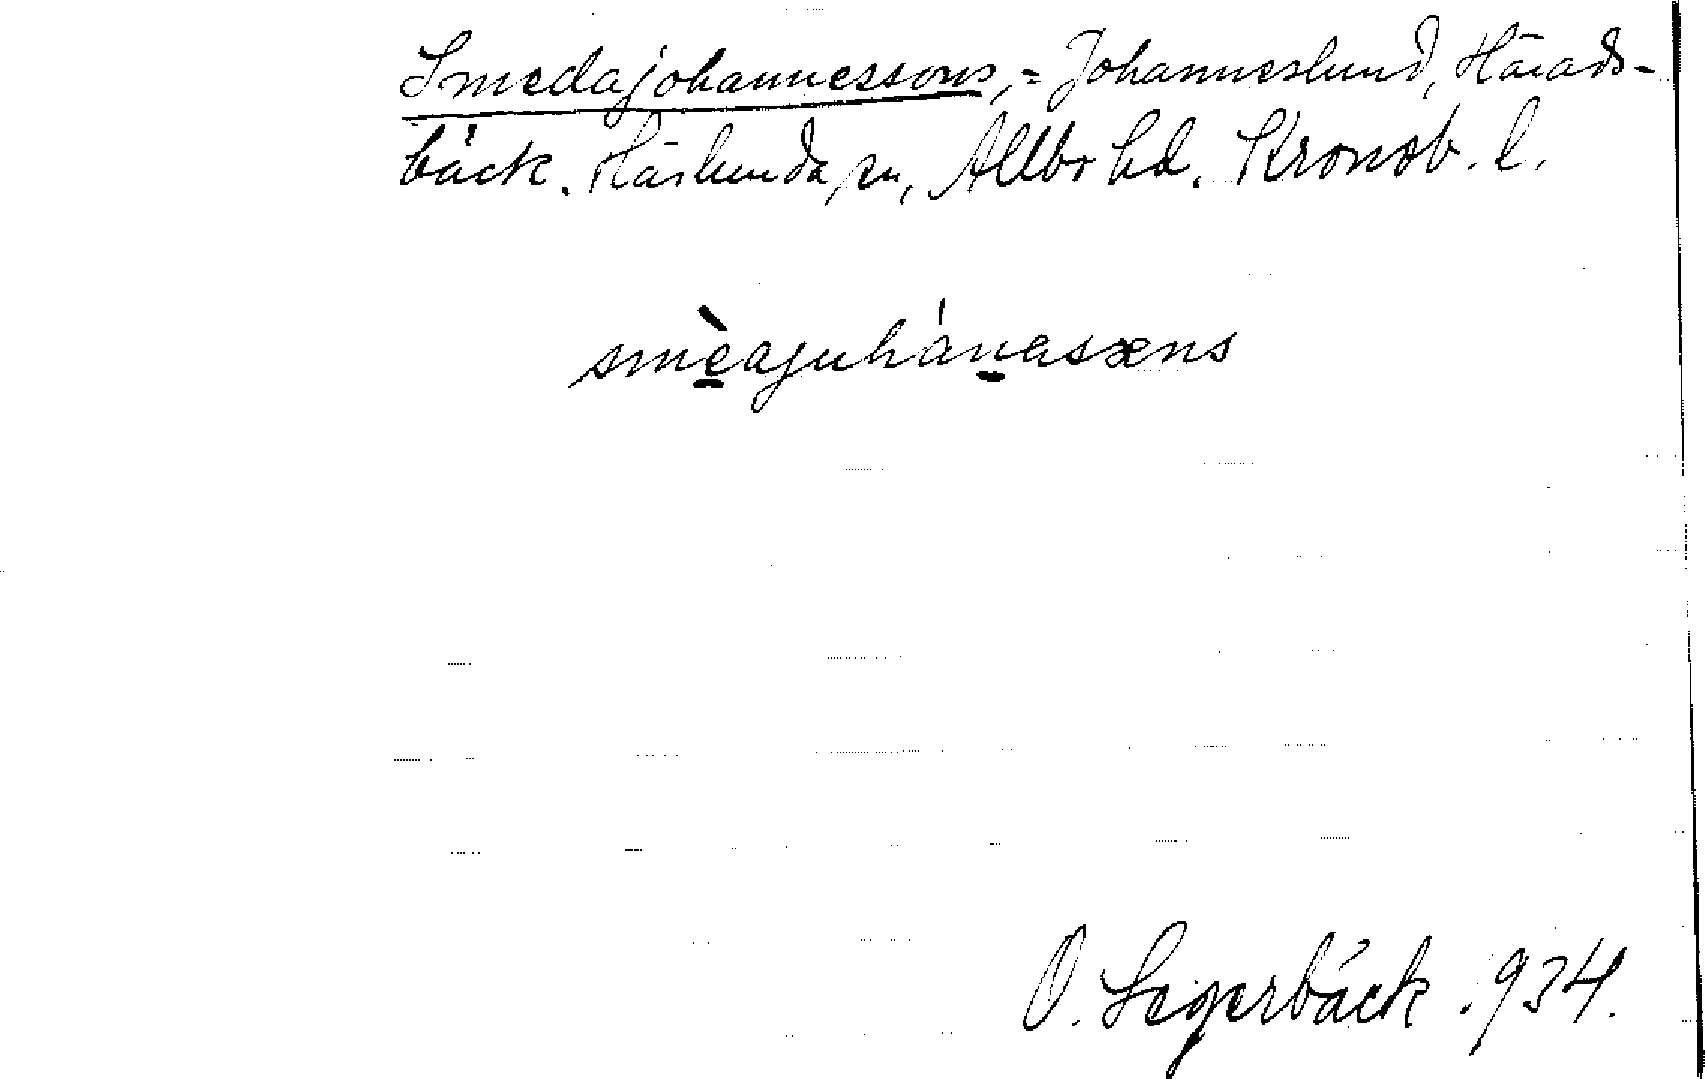 Smedajohannessons, = Johanneslund, Härads-
bäck. Härlunda sn, Allbo hd. Kronob. l.
smèajuhánasæns
O. Segerbäck. 934.